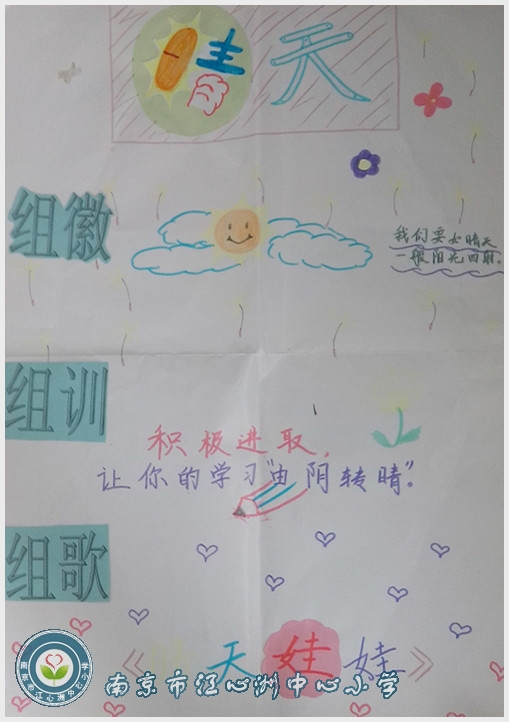 晴天
组徽
我们要如晴天
一般阳光四射。
组训
积极进取,
让你的学习"由阴转晴"。
组歌
《天娃娃》
南京市江心洲中心小学
南京市江心洲中心小学